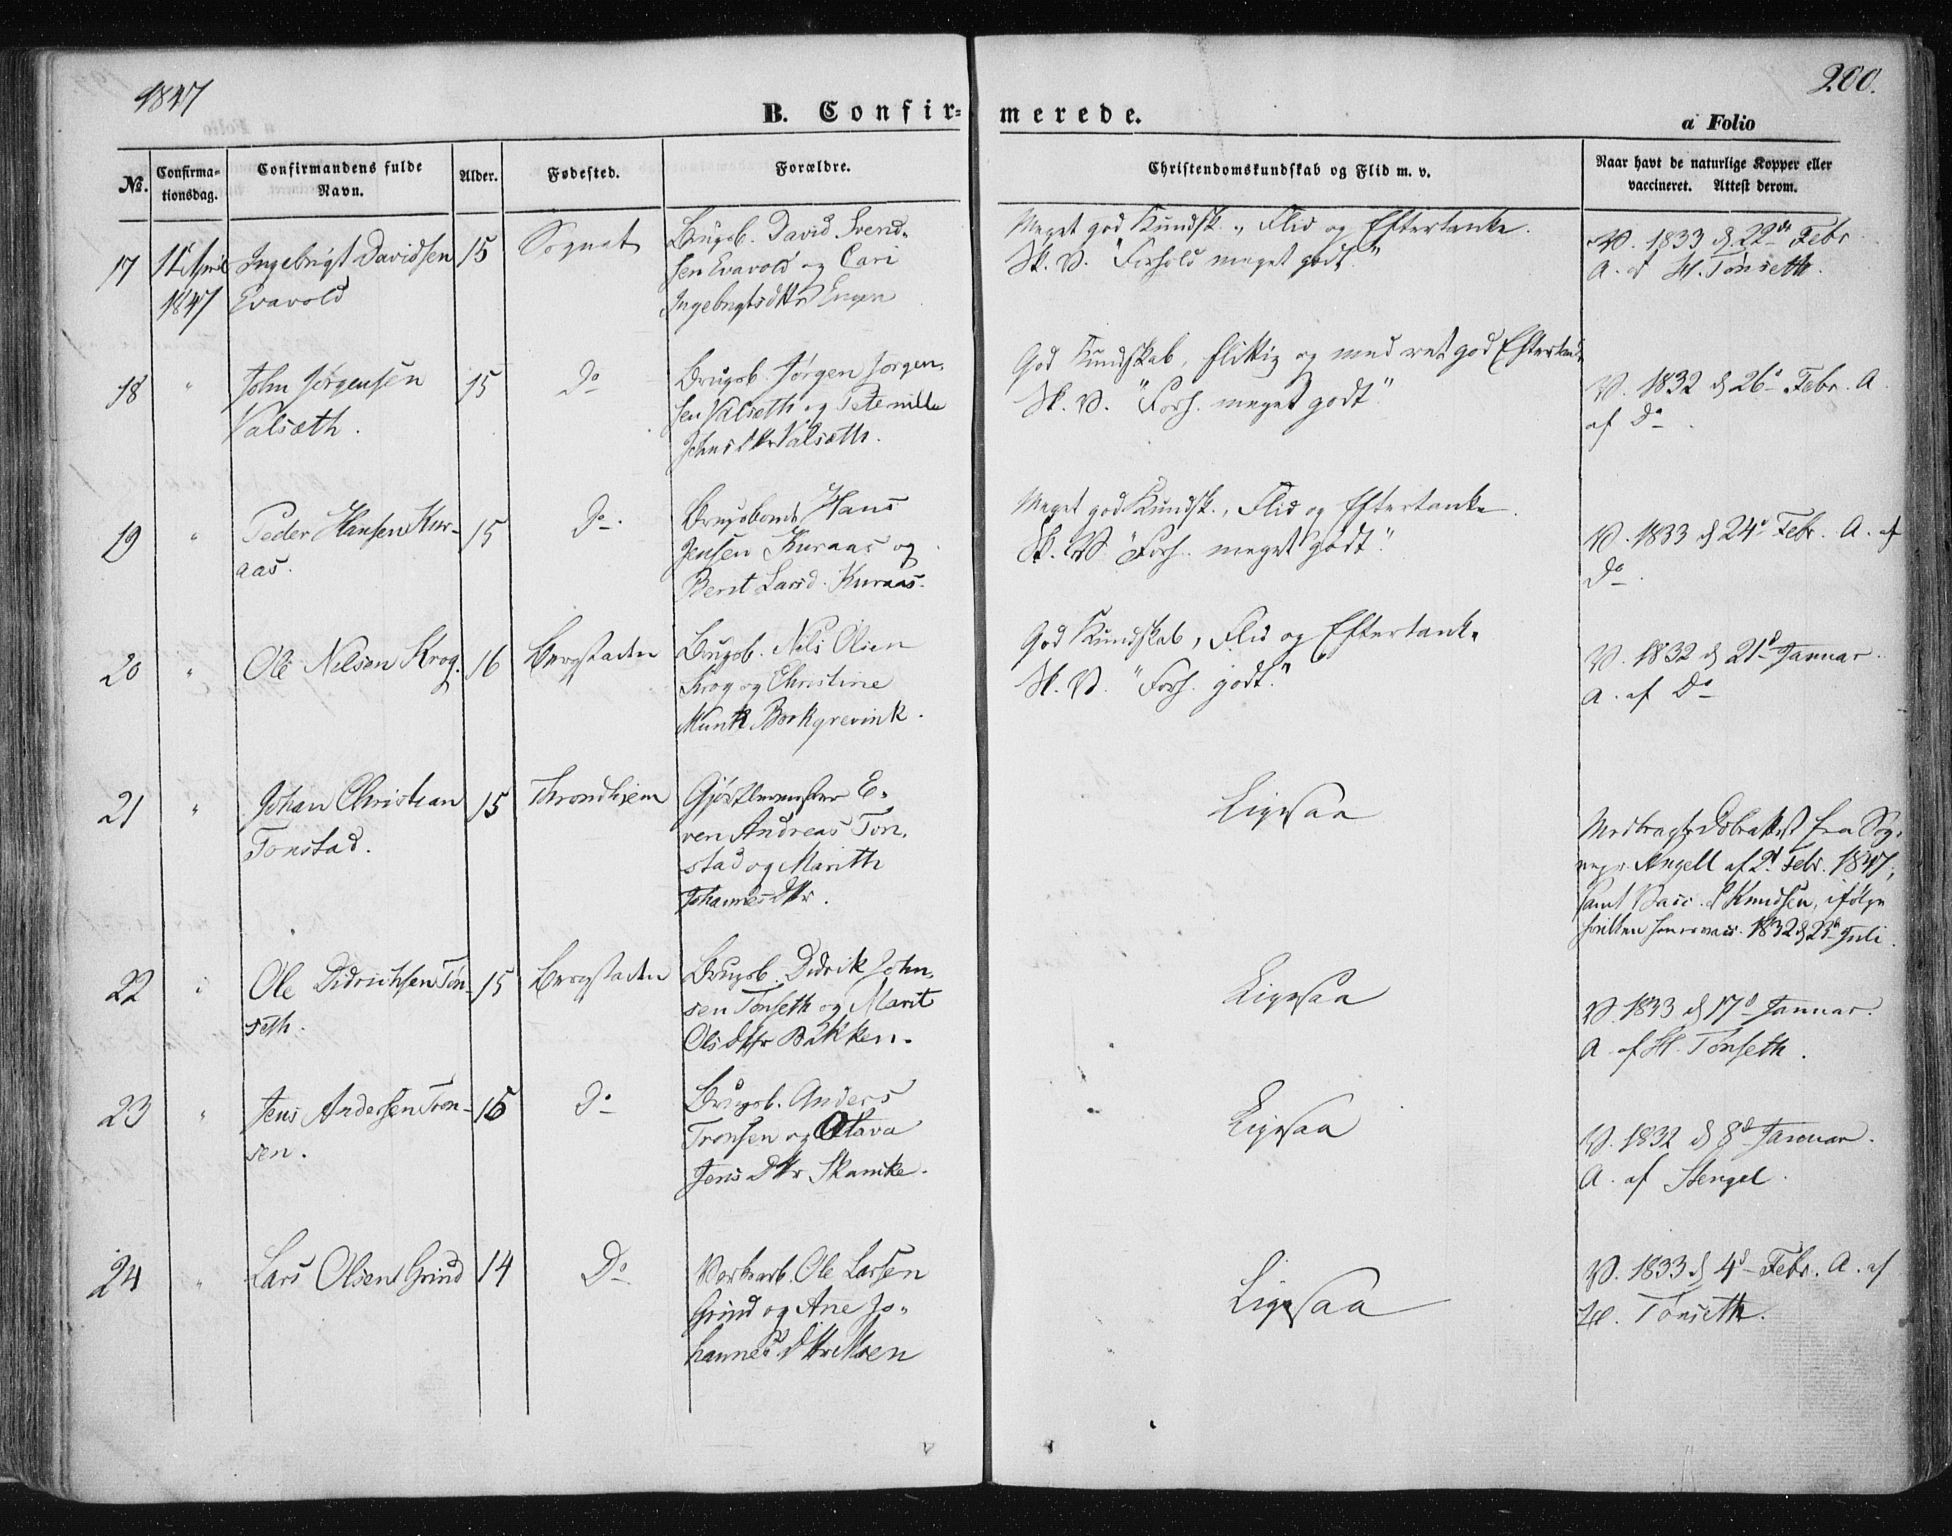 1847
200.
B. Confirmerede.
a Folio
No.
Confirmationsdag.
Confirmandens fulde Navn.
Alder.
Fødested.
Forældre.
Christendomskundskab og Flid m. v.
Naar havt de naturlige Kopper eller vaccineret. Attest derom.
17
11 April
1847
Ingebrigt Davidsen
Evavold
15
Sognet
Brugsb. David Svend-
sen Evavold og Cari
Ingebrigtsdttr Engen
Meget god Kundsk., Flid og Eftertanke.
Sk. V. "Forhold meget godt."
V. 1833 d 22de Febr
A. af H. Tønseth.
18
"
John Jørgensen
Valsæth.
15
Do
Brugsb. Jørgen Jørgen-
sen Valsæth og Peternille
Johnsdttr Valsæth.
God Kundskab, flittig og med ret god Eftertanke
Sk. V. "Forh. meget godt."
V. 1832 d 26d Febr. A
af Do
19
"
Peder Hansen Kur-
aas.
15
Do
Brugsbonde Hans
Jensen Kuraas og
Berit Larsd. Kuraas.
Meget god Kundsk., Flid og Eftertanke.
Sk. V. "Forh. meget godt."
V. 1833 d 24d Febr. A. af
Do.
20
"
Ole Nilsen Krog.
16
Bergstaden
Brugsb. Nils Olsen
Krog og Christine
Munk Borkgrevink.
God Kundskab, Flid og Eftertanke
Sk. V. "Forh. godt."
V. 1832 d 21d Januar.
A. af Do
21
"
Johan Christian
Tonstad.
15
Throndhjem
Gjørtlermester E-
ven Andreas Ton-
stad og Marith
Johannesdttr.
Ligesaa
Medbragt Døbeattest fra Sog-
nepr. Angell af 2d Febr. 1847,
samt Vacc. af Knudsen, ifølge
hvilken han er vacc. 1832 d 23d Juli.
22
"
Ole Didrichsen Tøn-
seth.
15
Bergstaden
Brugsb. Didrik John-
sen Tønseth og Marit
Olsdttr Bakken.
Ligesaa
V. 1833 d 17d Januar.
A. af H. Tønseth.
23
"
Jens Andersen Tron-
sen.
15
Do
Brugsb. Anders
Tronsen og Olava
Jensdttr Skancke.
Ligesaa
V. 1832 d 8d Januar.
A. af Stengel.
24
"
Lars Olsen Grind
14
Do
Verksarb. Ole Larsen
Grind og Ane Jo-
hannesdttr Moen
Ligesaa
V. 1833 d 4d Febr. A. af
H. Tønseth.